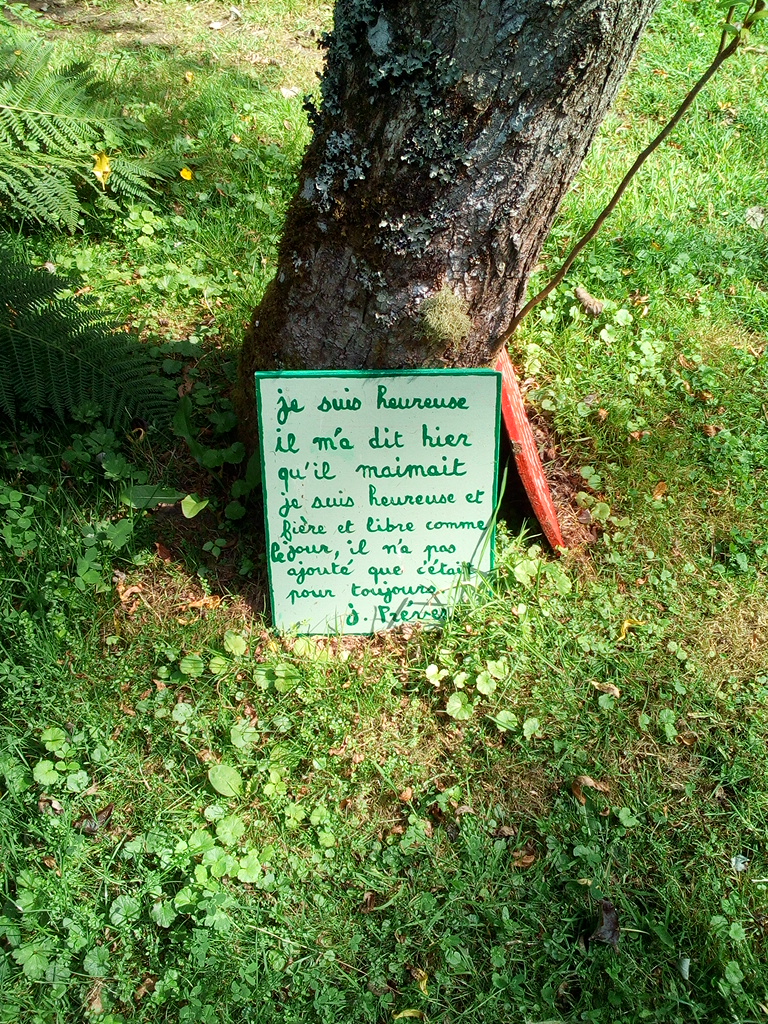 je suis heureuse
il m'a dit hier
qu'il maimait
je suis heureuse et
fière et libre comme
le jour, il n'a pas
ajouté que c'était
pour toujours
J. Préver